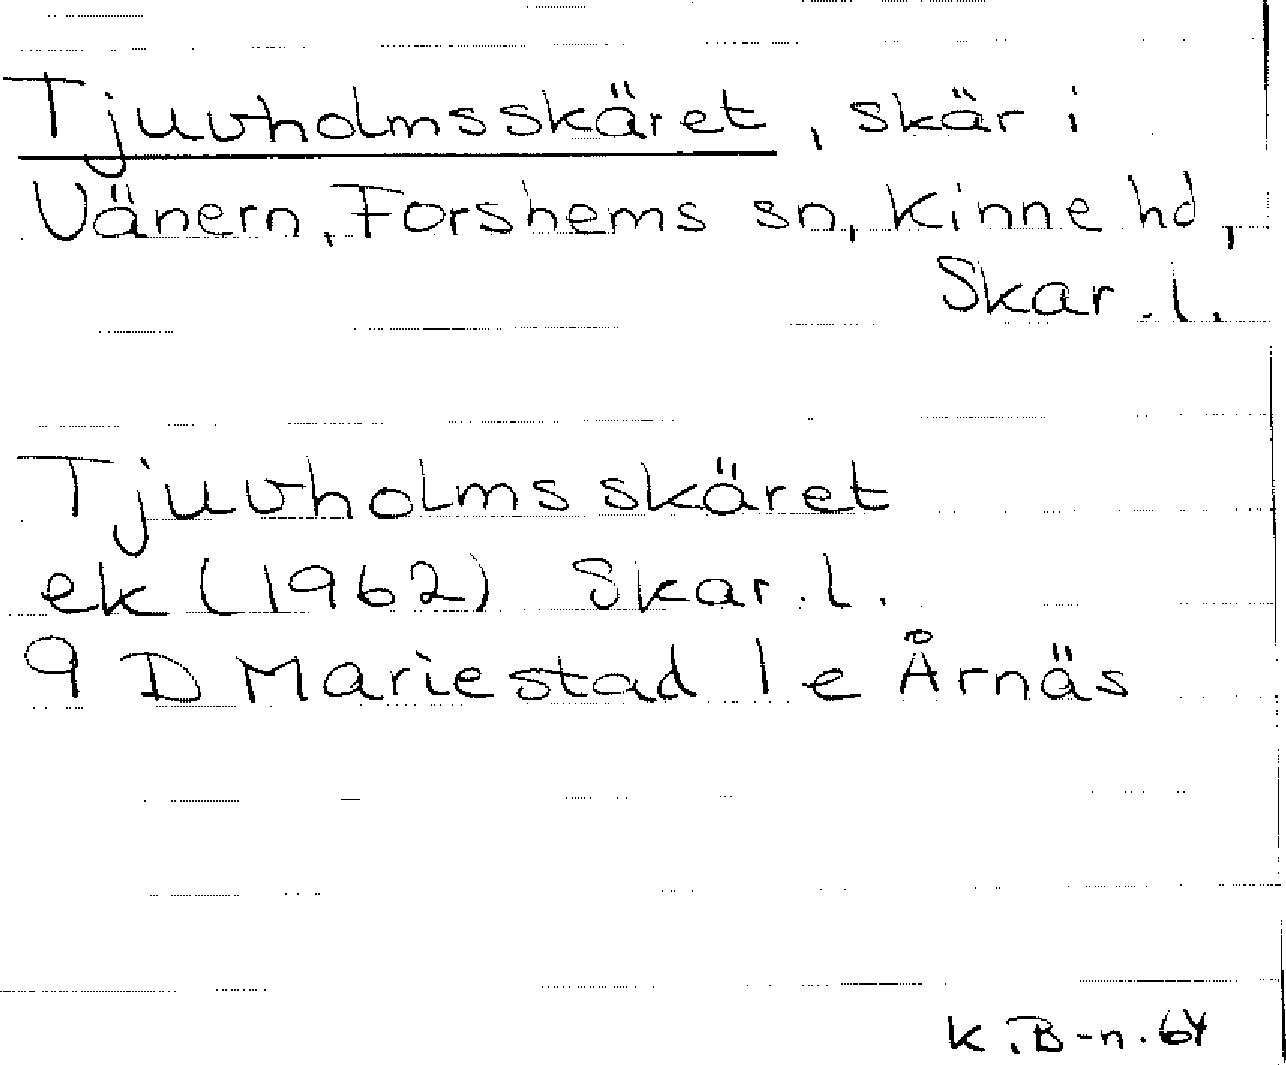 Tjuvholmsskäret, skär i
Vänern, Forshems sn, Kinne hd,
Skar. l.
Tjuvholmsskäret
ek (1962) Skar. l.
9 D Mariestad 1 e Årnäs
K. B-n. 64